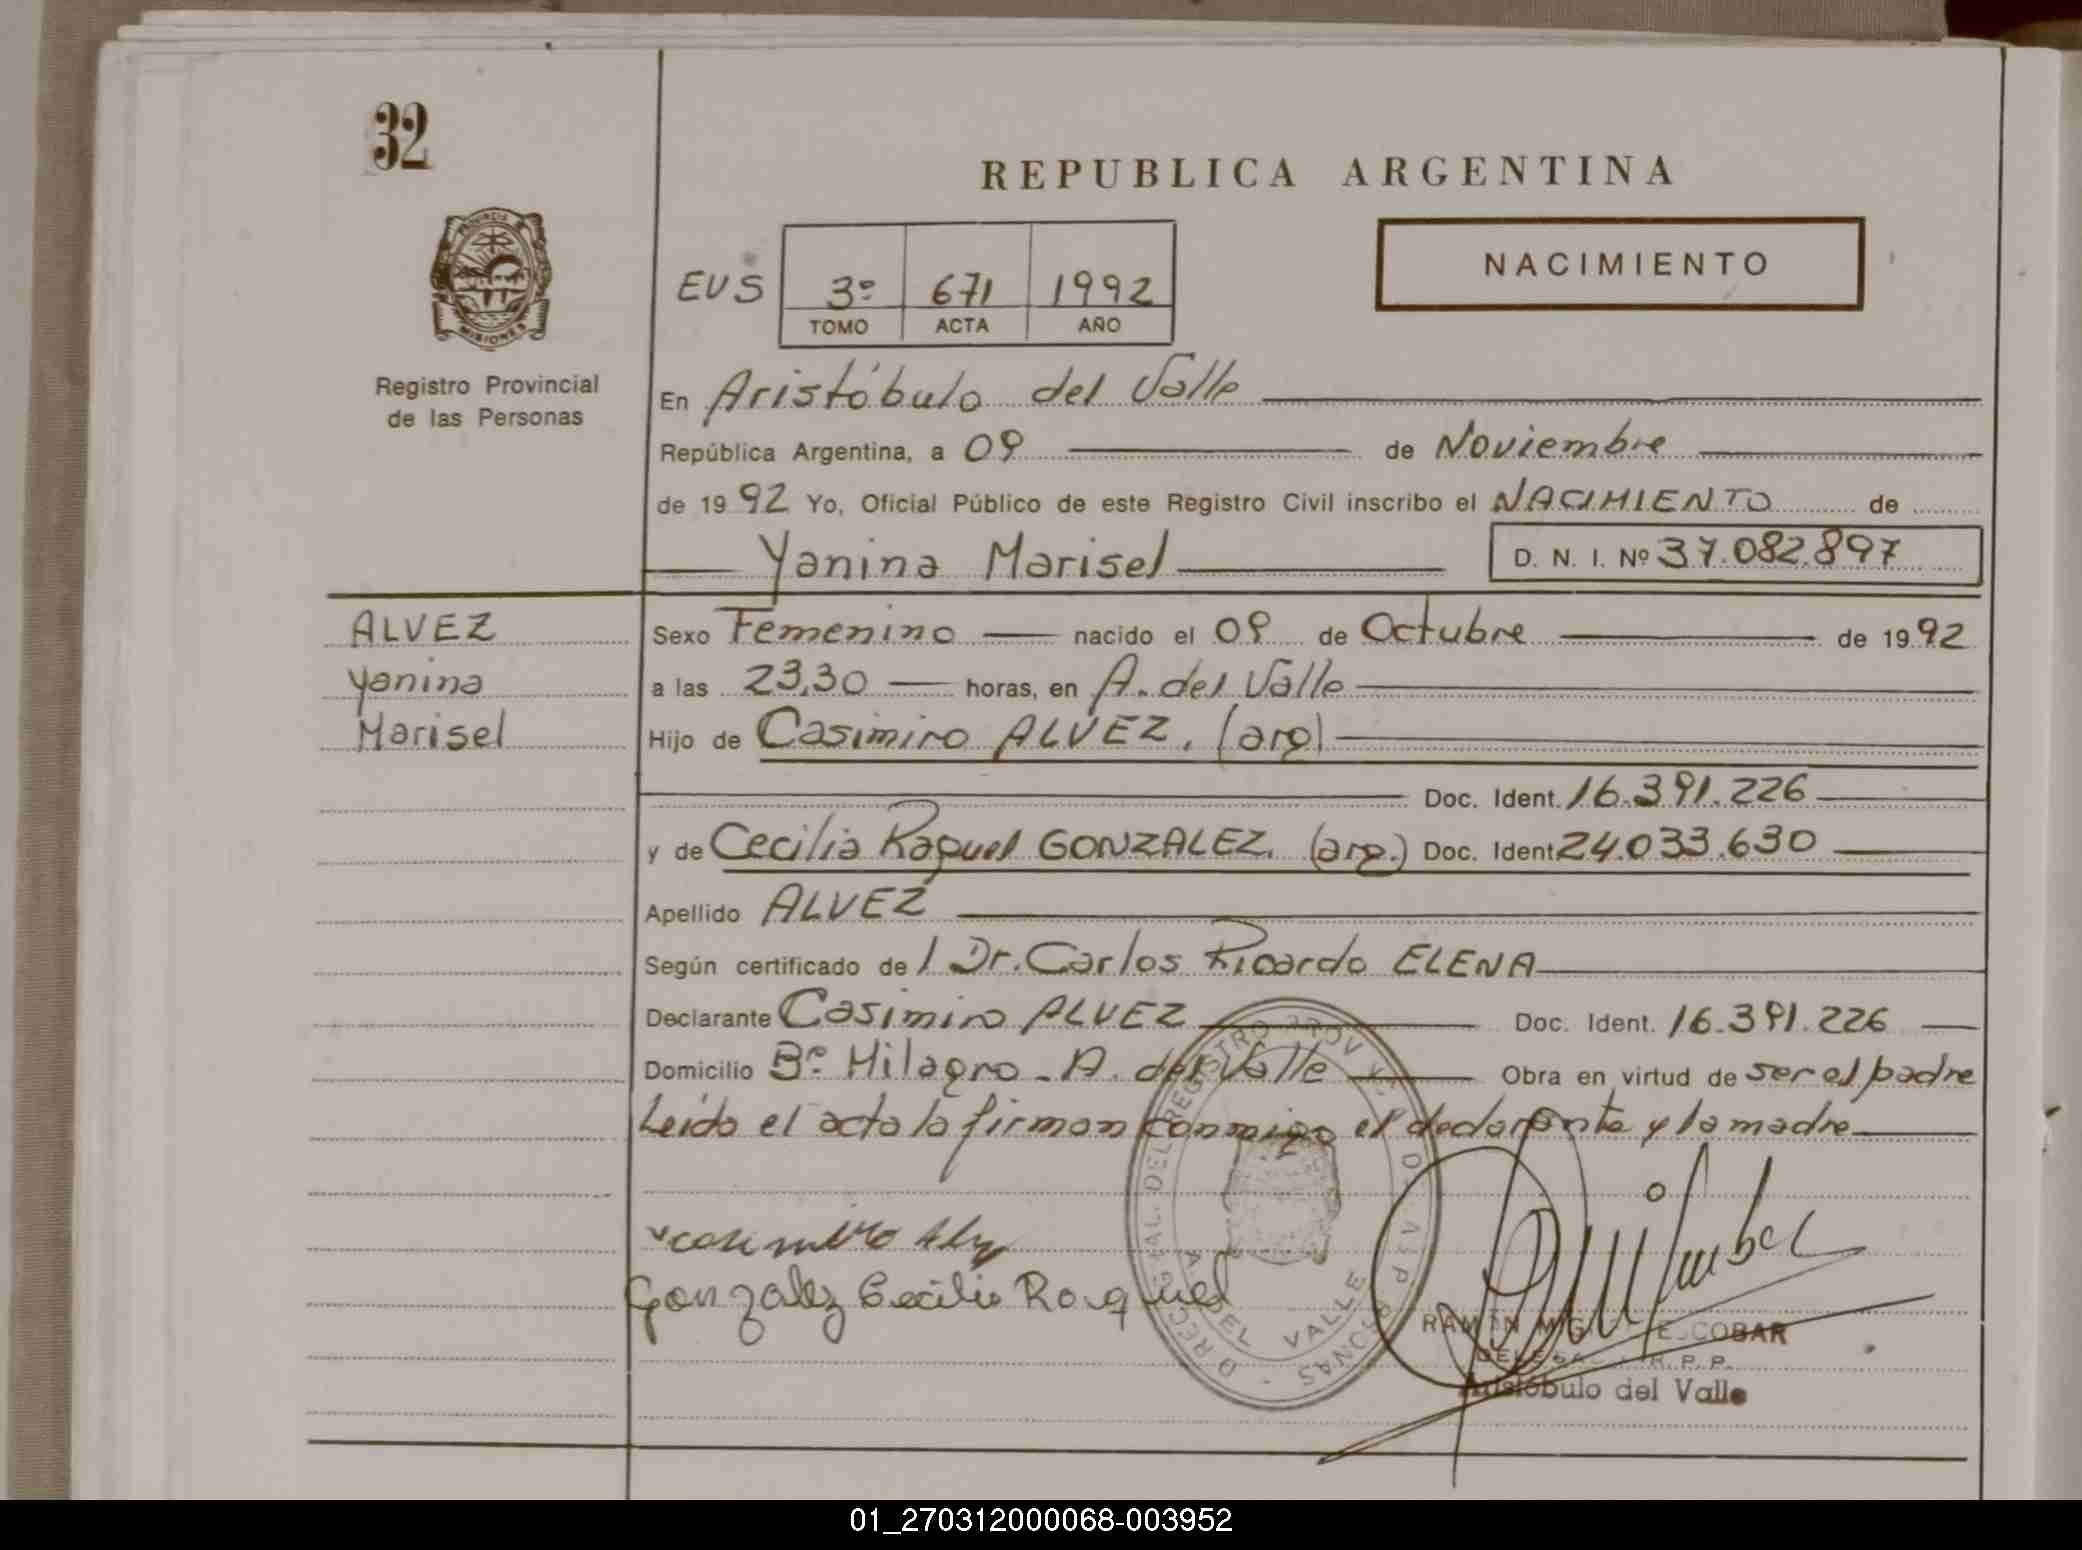 32
REPUBLICA ARGENTINA
PROVINCIA DE
MISIONES
Registro Provincial
de las Personas
NACIMIENTO
EUS 3º 671 1992
TOMO ACTA AÑO
En Aristóbulo del Valle
República Argentina, a 09 de Noviembre
de 1992 Yo, Oficial Público de este Registro Civil inscribo el NACIMIENTO de
Yanina Marisel D. N. I. Nº 37.082.897
ALVEZ
Yanina
Marisel
Sexo Femenino nacido el 09 de Octubre de 1992
a las 23,30 horas, en A. del Valle
Hijo de Casimiro ALVEZ. (arg)
Doc. Ident. 16.391.226
y de Cecilia Raquel GONZALEZ. (arg.) Doc. Ident. 24.033.630
Apellido ALVEZ
Según certificado de l Dr. Carlos Ricardo ELENA
Declarante Casimiro ALVEZ Doc. Ident. 16.391.226
Domicilio Bº Milagro - A. del Valle Obra en virtud de ser el padre
Leída el acta la firman conmigo el declarante y la madre
Gonzalez Cecilia Raquel
A. DEL VALLE
RAMON MIGUEL ESCOBAR
Aristóbulo del Valle
01_270312000068-003952